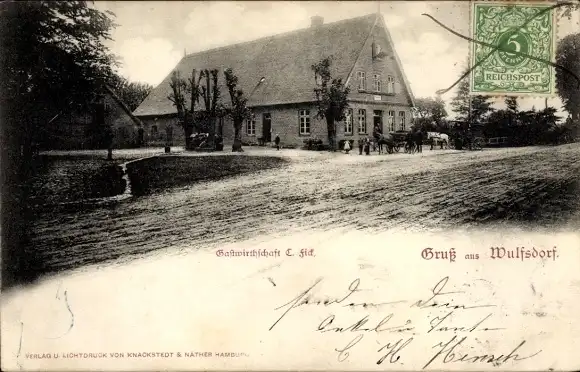 5
REICHSPOST
Gastwirthschaft C. Fick.
Gruß aus Wulfsdorf.
Onkel u. Tante
C. H. Hinsch
VERLAG U. LICHTDRUCK VON KNACKSTEDT & NÄTHER HAMBURG